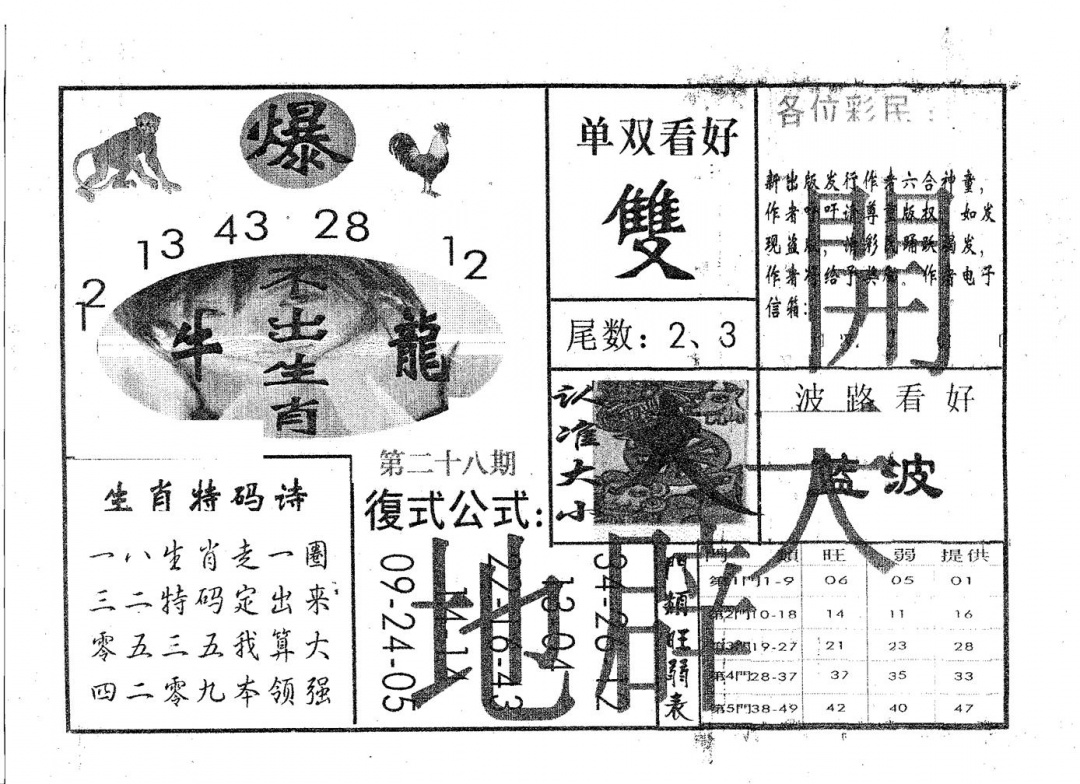 爆
43 28
13
12
2
1
不出生肖
牛
龍
单双看好
雙
尾数：2、3
认准大小
大
各位彩民：
新出版发行作者六合神童，
作者吁吁请尊重版权，如发
现盗版，请彩民踊跃揭发，
作者将给予奖励。作者电子
信箱：
開
波路看好
蓝波
天
第二十八期
復式公式：
09-24-05
14-1
22-16-43
13-04
34-26-12
地
生肖特码诗
一八生肖走一圈
三二特码定出来
零五三五我算大
四二零九本领强
門類旺弱表
門類 旺 弱 提供
第1門1-9 06 05 01
第2門10-18 14 11 16
第3門19-27 21 23 28
第4門28-37 37 35 33
第5門38-49 42 40 47